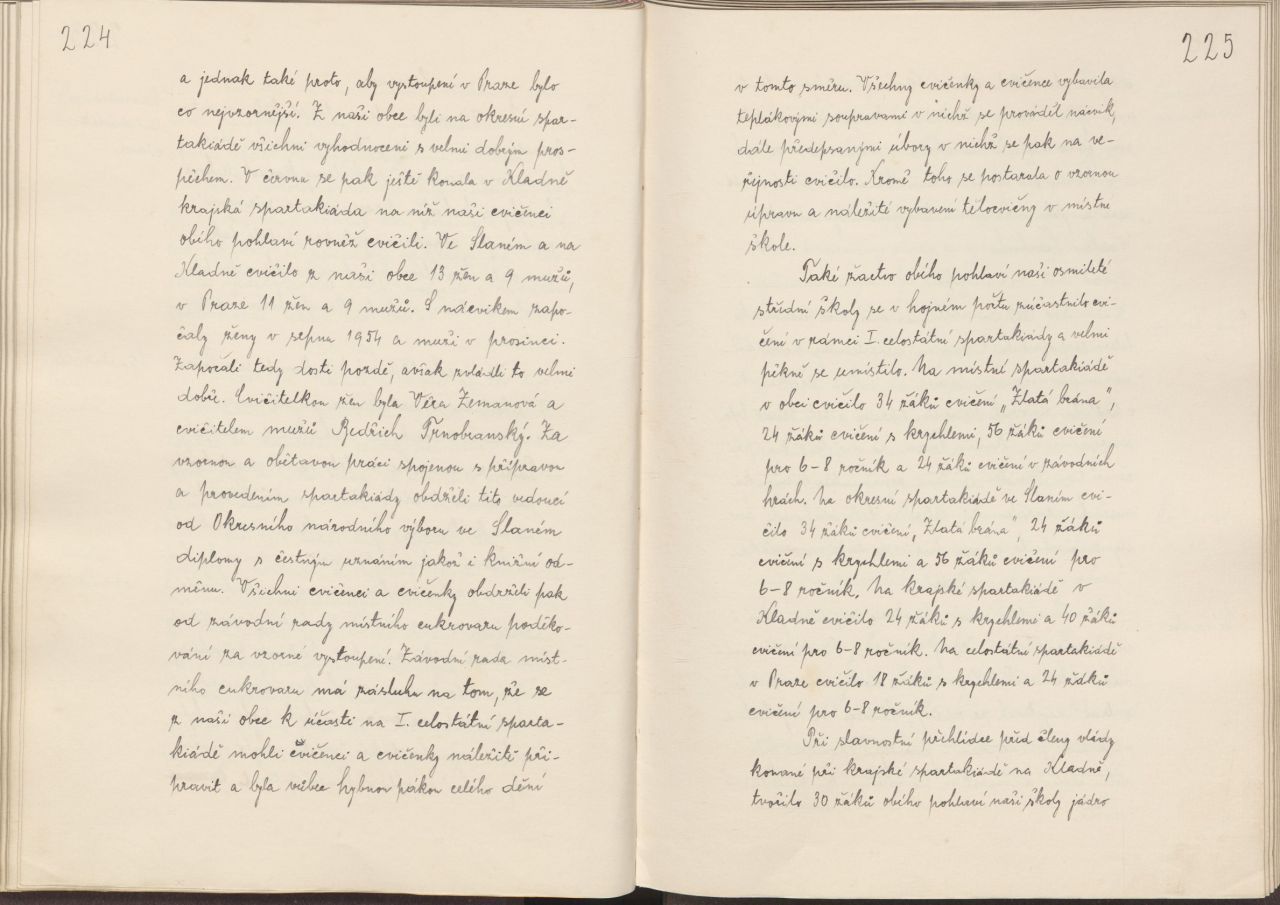 224
a jednak také proto, aby vystoupení v Praze bylo
co nejvzornější. Z naší obce byli na okresní spar-
takiádě všichni vyhodnoceni s velmi dobrým pros-
pěchem. V červnu se pak ještě konala v Kladně
krajská spartakiáda na níž naši cvičenci
obího pohlaví rovněž cvičili. Ve Slaném a na
Kladně cvičilo z naší obce 13 žen a 9 mužů,
v Praze 11 žen a 9 mužů. S nácvikem zapo-
čaly ženy v srpnu 1954 a muži v prosinci.
Započali tedy dosti pozdě, avšak zvládli to velmi
dobře. Cvičitelkou žen byla Věra Zemanová a
cvičitelem mužů Bedřich Trnobranský. Za
vzornou a obětavou práci spojenou s přípravou
a provedením spartakiády obdrželi tito vedoucí
od Okresního národního výboru ve Slaném
diplomy s čestným uznáním jakož i knižní od-
měnu. Všichni cvičenci a cvičenky obdrželi pak
od závodní rady místního cukrovaru poděko-
vání za vzorné vystoupení. Závodní rada míst-
ního cukrovaru má zásluhu na tom, že se
z naší obce k účasti na I. celostátní sparta-
kiádě mohli cvičenci a cvičenky náležitě při-
pravit a byla vůbec hybnou pákou celého dění
225
v tomto směru. Všechny cvičenky a cvičence vybavila
teplákovými soupravami v nichž se prováděl nácvik,
dále předepsanými úbory v nichž se pak na ve-
řejnosti cvičilo. Kromě toho se postarala o vzornou
úpravu a náležité vybavení tělocvičny v místní
škole.
Také žactvo obího pohlaví naší osmileté
střední školy se v hojném počtu zúčastnilo cvi-
čení v rámci I. celostátní spartakiády a velmi
pěkně se umístilo. Na místní spartakiádě
v obci cvičilo 34 žáků cvičení „Zlatá brána",
24 žáků cvičení s krychlemi, 56 žáků cvičení
pro 6-8 ročník a 24 žáků cvičení v závodních
hrách. Na okresní spartakiádě ve Slaném cvi-
čilo 34 žáků cvičení „Zlatá brána", 24 žáků
cvičení s krychlemi a 56 žáků cvičení pro
6-8 ročník. Na krajské spartakiádě v
Kladně cvičilo 24 žáků s krychlemi a 40 žáků
cvičení pro 6-8 ročník. Na celostátní spartakiádě
v Praze cvičilo 18 žáků s krychlemi a 24 žáků
cvičení pro 6-8 ročník.
Při slavnostní přehlídce před členy vlády
konané při krajské spartakiádě na Kladně,
tvořilo 30 žáků obího pohlaví naší školy jádro